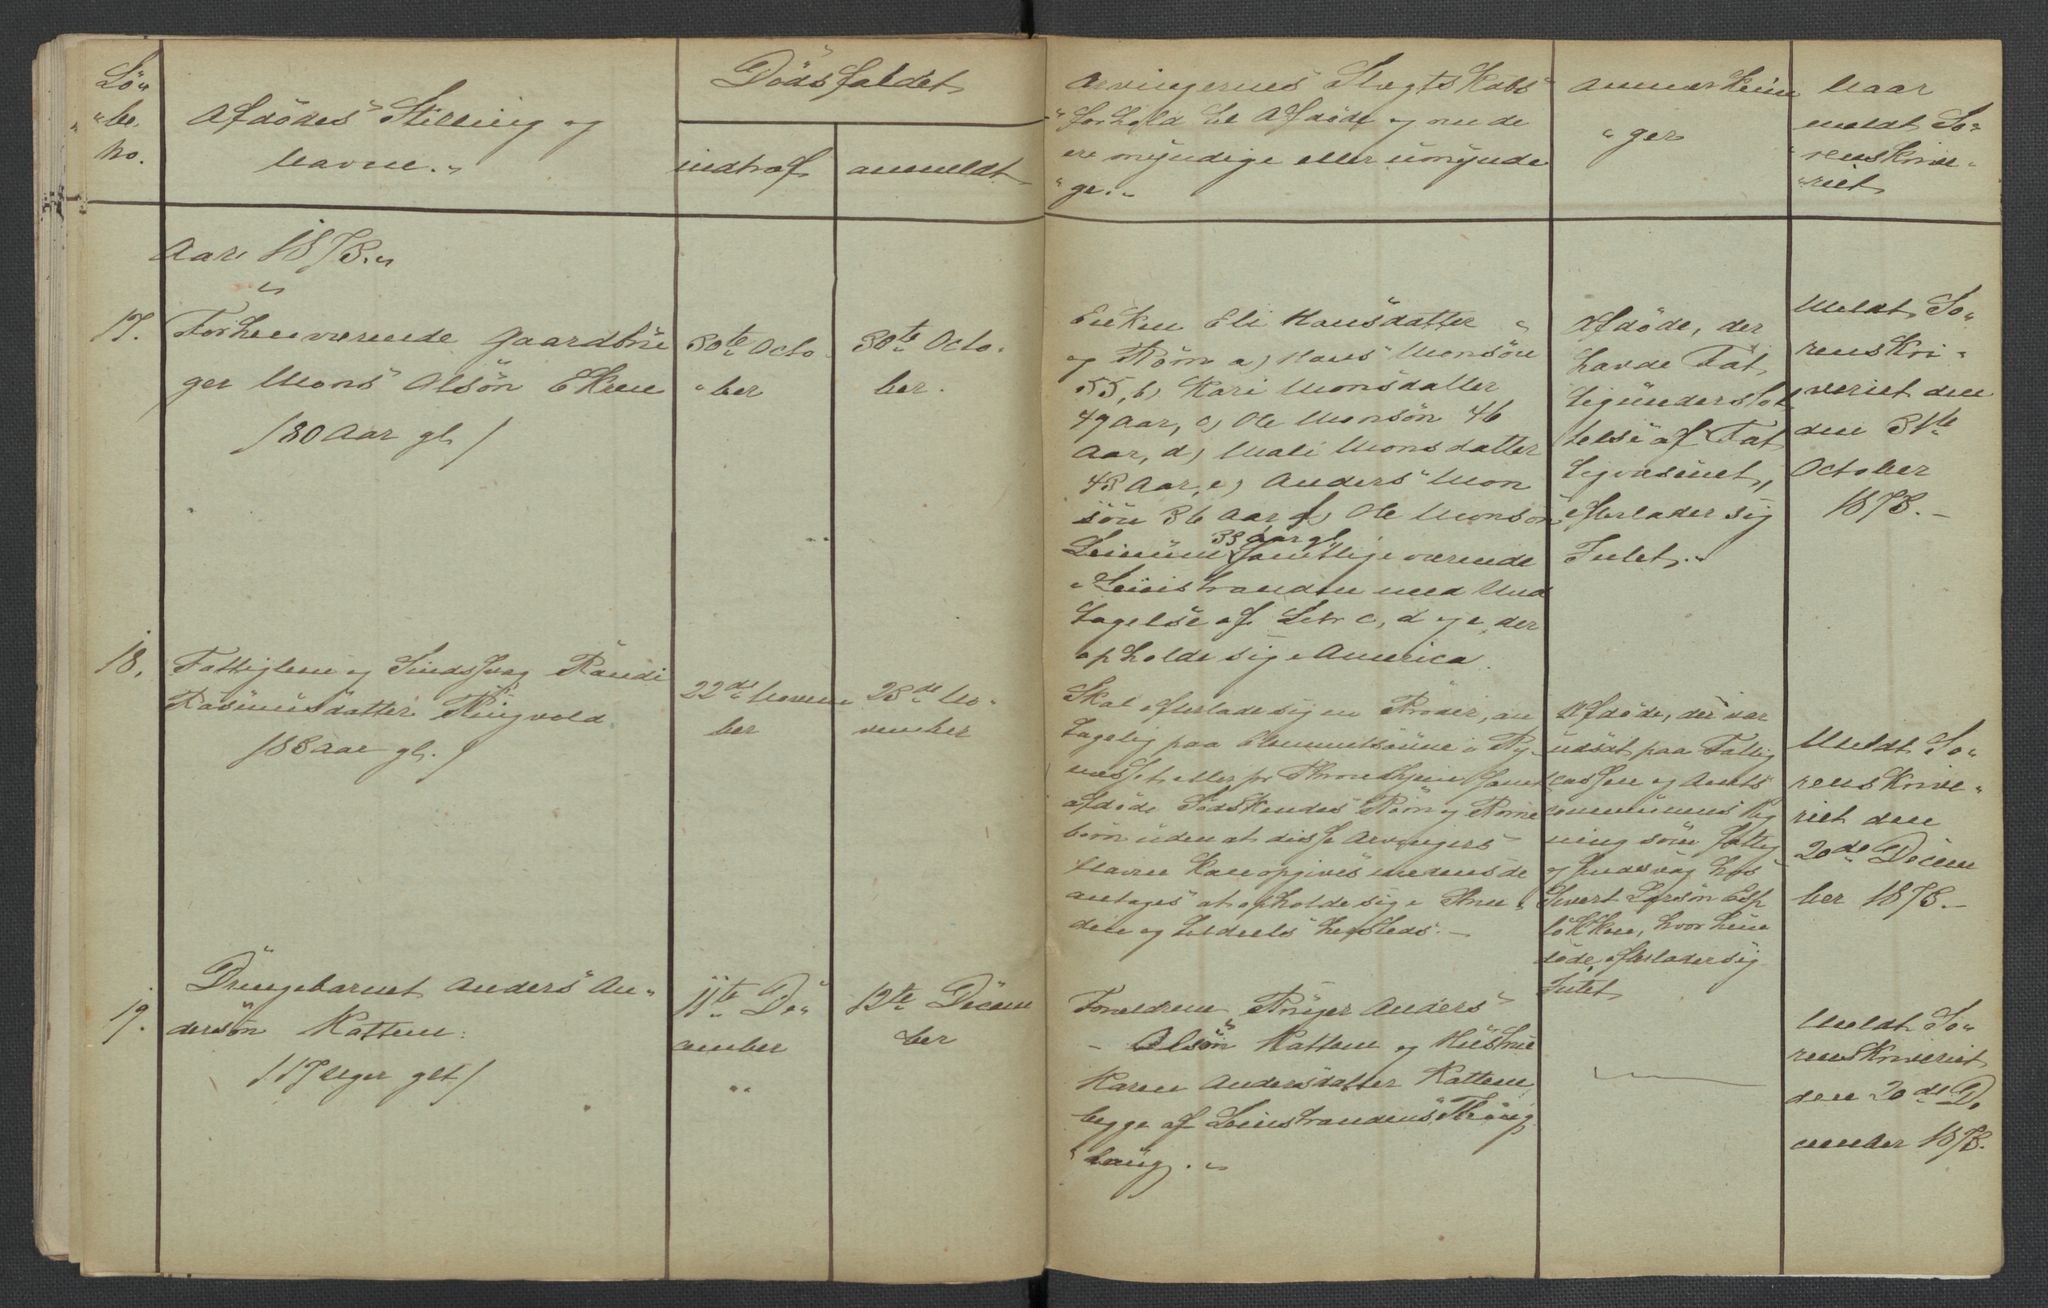 Lö"
"be.
No.
Afdödes Stilling og
Navne.
Dödsfaldet
indtraf
anmeldt
Arvingernes Slægtskabs
"forhold til Afdöde og om de
ere myndige eller umyndi
"ge.
Anmærknin
"ger
Naar
meldt So"
"renskrive"
"riet
Aar 1873.
17.
Forhenværende Gaardbru
ger Mons Olsön Ekren
/80 Aar gl/
30te Octo
"ber
30te Octo.
ber.
Enken Eli Hansdatter
og Börn a, Hans Monsön
55, b, Kari Monsdatter
49 Aar, c, Ole Monsön 46
Aar, d, Mali Monsdatter
43 Aar, e, Anders Mon
sön 36 Aar f, Ole Monsön
33 Aar gl
Leinum samtlige værende
i Leinstranden med Und
tagelse af Litr c, d og e, der
opholde sig i America.
Afdöde, der
havde Fat
tigunderstöt
telse af Fat
tigvæsenet,
efterlader sig
Intet.
Meldt So"
renskri"
veriet den
den 31te
October
1873.
18.
Fattiglem og Sindssvag Randi
Rasmusdatter Ringvold
/83 Aar gl./
22de Novem
ber
23de No"
vember
Skal efterlade sig en Broder, an
tagelig paa i By
næsset eller pr Throndhjem samt
afdöde Södskendes Börn og Börne
börn uden at disse Arvingers
Navne kan opgives medens de
antages at opholde sig i
og tildeels hersteds.
Afdöde, der var
udsat paa Fattig
cassen og Amts
communens Reg
ning som fattig
og sindsvag hos
Sivert Larsön Esp
lökken, hvor hun
döde, efterlader sig
Intet.
Meldt So"
renskrive"
riet den
20de Decem
ber 1873.
19.
Drengebarnet Anders An"
dersön Kattem.
/17 Uger glt/
11te De"
cember
12te Decem
ber
Forældrene Bruger Anders
Olsön Kattem og Hustrue
Karen Andersdatter Kattem
begge af Leinstrandens Thing
"laug.
Meldt So"
renskriveriet
den 20de De
cember 1873.